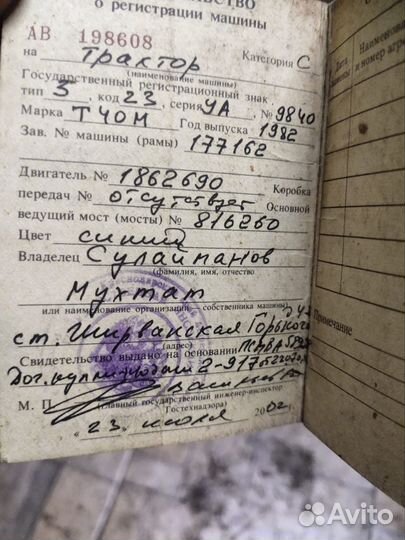 о регистрации машины
АВ 198608
Категория С
на трактор
(наименование машины)
Государственный регистрационный знак
тип 3, код 23, серия УА, № 9840
Марка Т40М Год выпуска 1982
Зав. № машины (рамы) 177162
Двигатель № 1862690 Коробка
передач № отсутствует Основной
ведущий мост (мосты) № 816260
Цвет синий
Владелец Сулайманов
(фамилия, имя, отчество
Мухтат
или наименование организации - собственника машины)
ст. Ширванская Горького
(адрес)
Свидетельство выдано на основании
Дог. купли
М. П. (главный государственный инженер-инспектор
Гостехнадзора)
"23" июля 2002 г.
Дата
Наименование
и номер
машины
Примечание
Avito